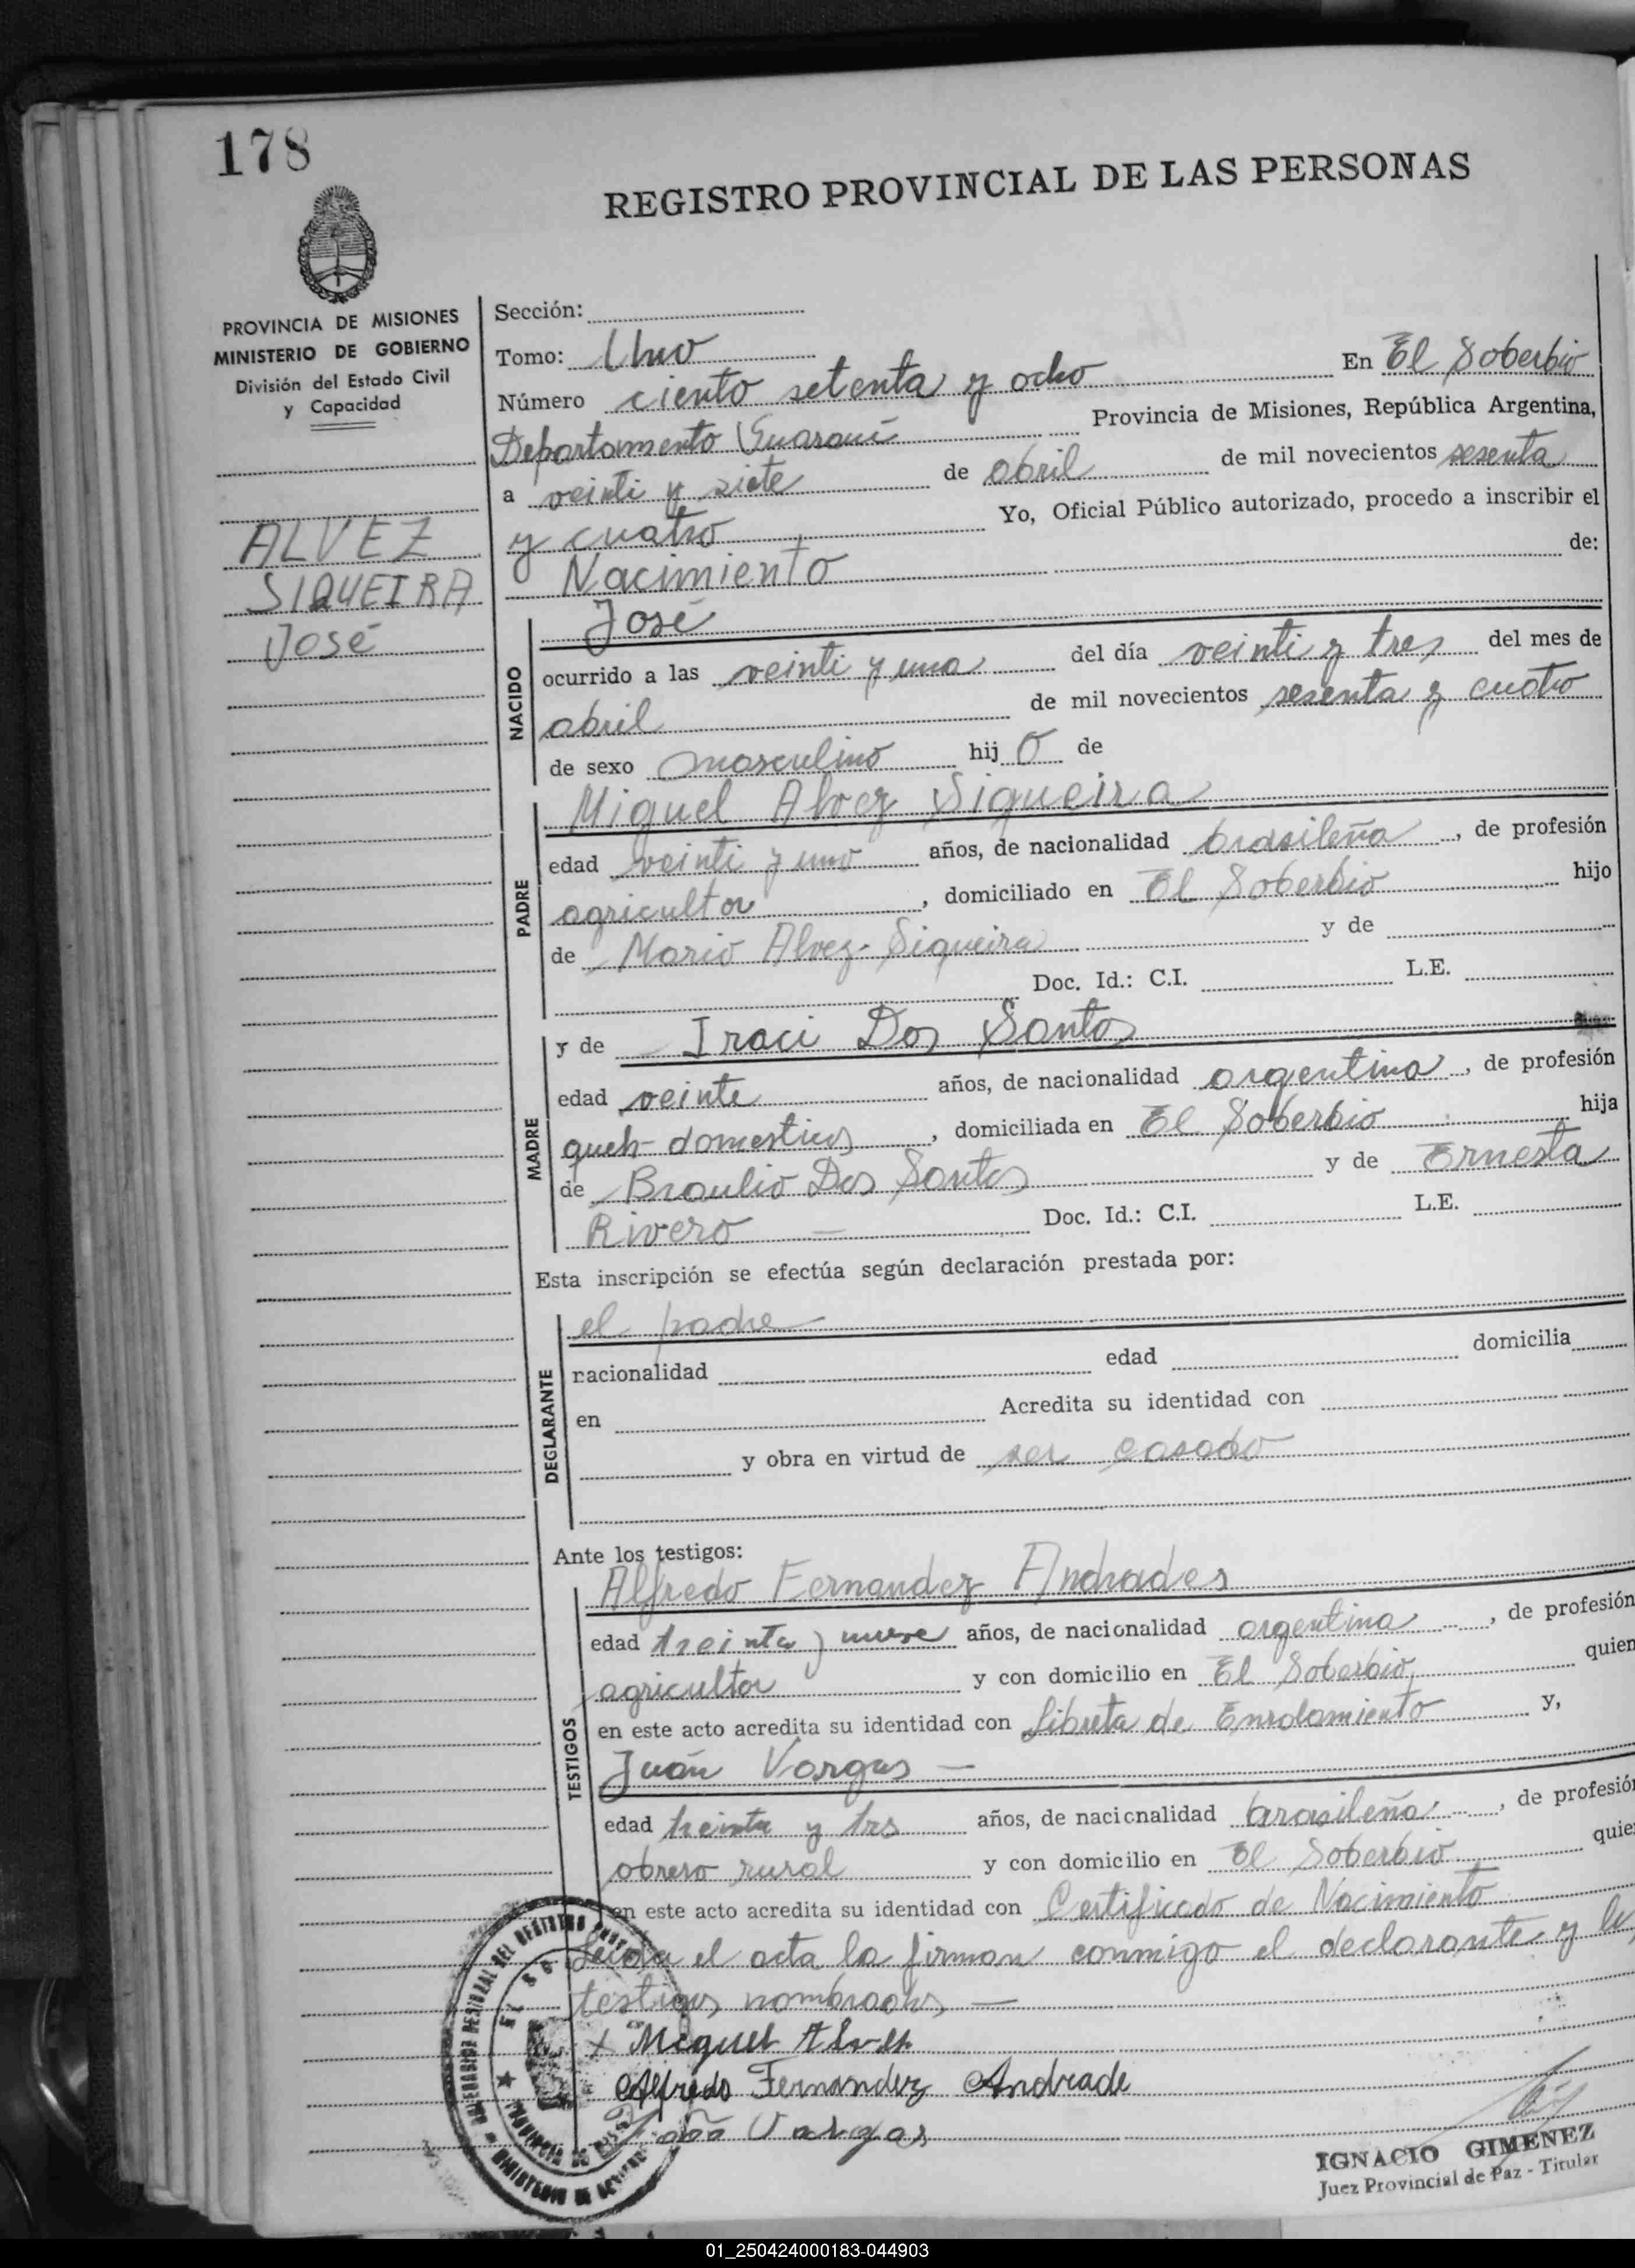 178
REGISTRO PROVINCIAL DE LAS PERSONAS
PROVINCIA DE MISIONES
MINISTERIO DE GOBIERNO
División del Estado Civil
y Capacidad
ALVEZ
SIQUEIRA
José
Sección:
Tomo: Uno
Número ciento setenta y ocho En El Soberbio
Departamento Guaraní Provincia de Misiones, República Argentina,
a veinti y siete de abril de mil novecientos sesenta
y cuatro Yo, Oficial Público autorizado, procedo a inscribir el
Nacimiento de:
NACIDO
José
ocurrido a las veinti y una del día veinti y tres del mes de
abril de mil novecientos sesenta y cuatro
de sexo masculino hij o de
PADRE
Miguel Alvez Siqueira
edad veinti y uno años, de nacionalidad brasileña, de profesión
agricultor, domiciliado en El Soberbio hijo
de Mario Alvez Siqueira y de
Doc. Id.: C.I. L.E.
MADRE
y de Iraci Dos Santos
edad veinte años, de nacionalidad argentina, de profesión
queh domesticos, domiciliada en El Soberbio hija
de Braulio Dos Santos y de Ernesta
Rivero — Doc. Id.: C.I. L.E.
Esta inscripción se efectúa según declaración prestada por:
DECLARANTE
el padre
nacionalidad edad domicilia
en Acredita su identidad con
y obra en virtud de ser casado
Ante los testigos:
TESTIGOS
Alfredo Fernandez Andrades
edad treinta y nueve años, de nacionalidad argentina, de profesión
agricultor y con domicilio en El Soberbio, quien
en este acto acredita su identidad con Libreta de Enrolamiento y,
Juán Vargas —
edad treinta y tres años, de nacionalidad brasileña, de profesió
obrero rural y con domicilio en El Soberbio quie
en este acto acredita su identidad con Certificado de Nacimiento
Leida el acta la firman conmigo el declarante y los
testigos nombrados —
x Miguel
Alfredo Fernandez Andrade
Vargas
IGNACIO GIMENEZ
Juez Provincial de Paz - Titular
01_250424000183-044903